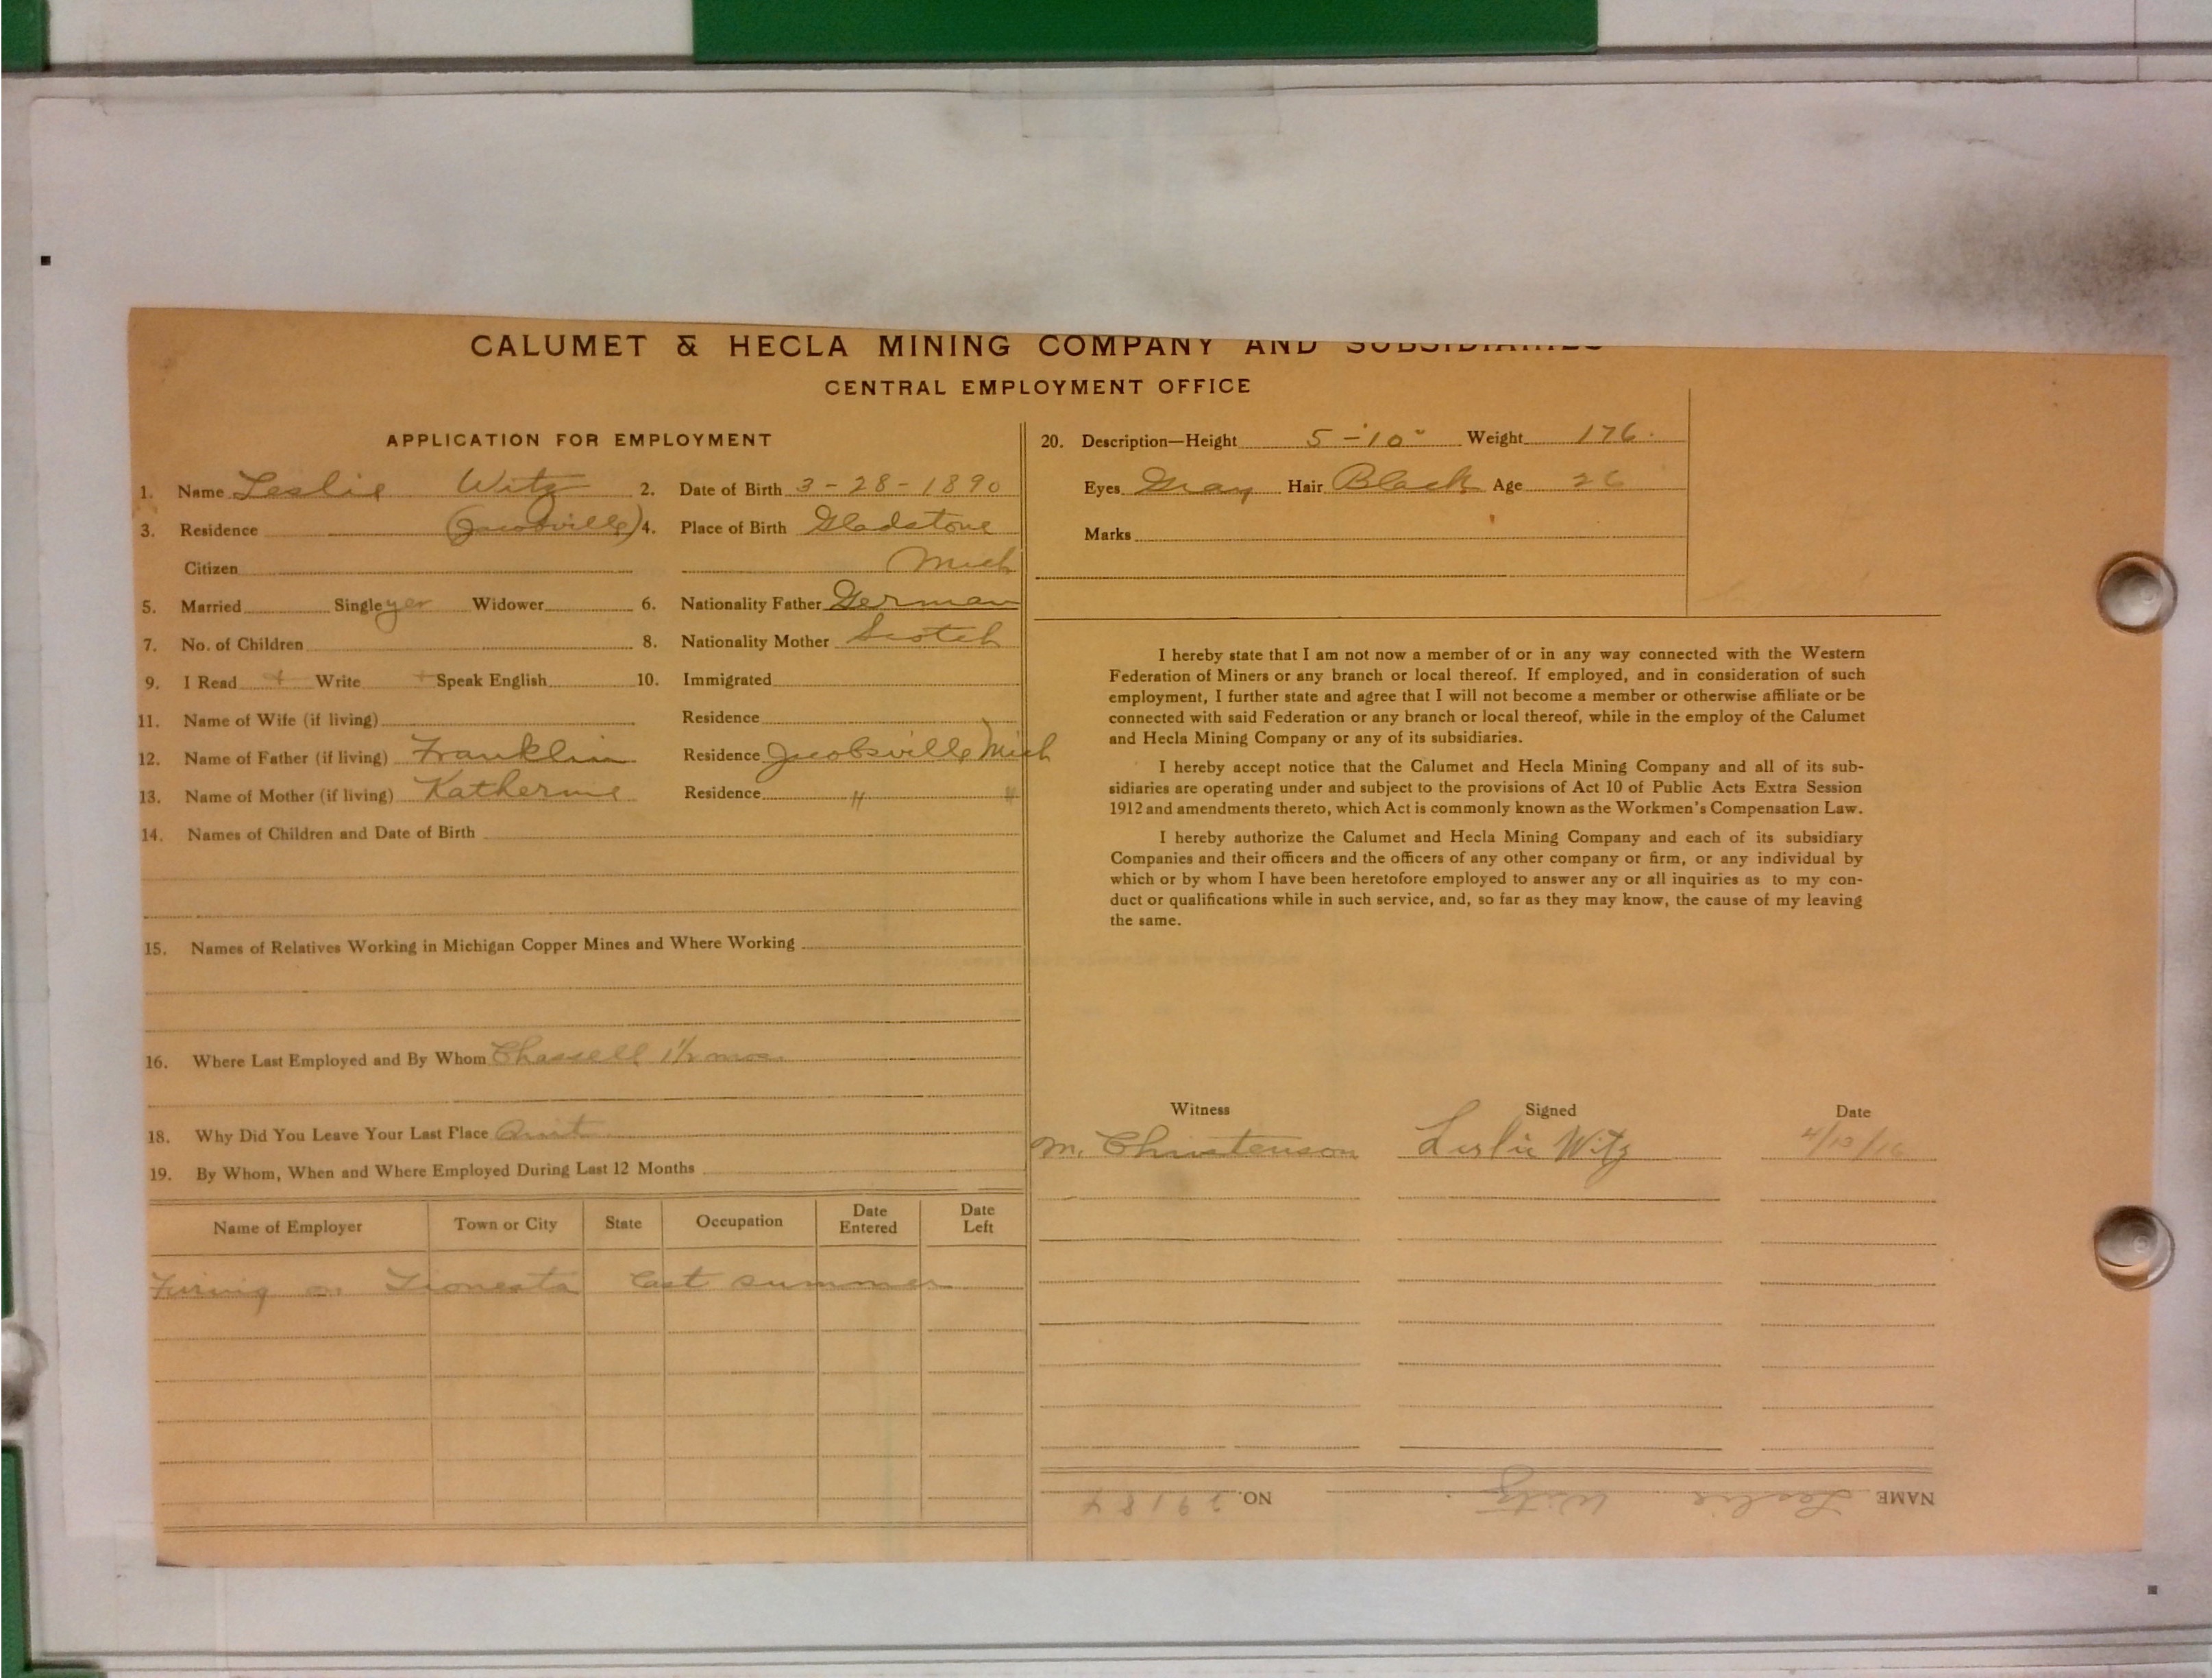 CALUMET & HECLA MINING COMPANY AND SUBSIDIARIES
CENTRAL EMPLOYMENT OFFICE
APPLICATION FOR EMPLOYMENT
1. Name Leslie Witz 2. Date of Birth 3-28-1890
3. Residence (Jacobsville) 4. Place of Birth Gladstone
Citizen Mich
5. Married Single yes Widower 6. Nationality Father German
7. No. of Children 8. Nationality Mother Scotch
9. I Read + Write + Speak English 10. Immigrated
11. Name of Wife (if living) Residence
12. Name of Father (if living) Franklin Residence Jacobsville Mich
13. Name of Mother (if living) Katherine Residence " "
14. Names of Children and Date of Birth
15. Names of Relatives Working in Michigan Copper Mines and Where Working
16. Where Last Employed and By Whom Chassell 1½ mos.
18. Why Did You Leave Your Last Place Quit
19. By Whom, When and Where Employed During Last 12 Months
Name of Employer Town or City State Occupation Date Entered Date Left
Firing on Tionesta last summer
20. Description—Height 5-10" Weight 176.
Eyes Gray Hair Black Age 26
Marks
I hereby state that I am not now a member of or in any way connected with the Western
Federation of Miners or any branch or local thereof. If employed, and in consideration of such
employment, I further state and agree that I will not become a member or otherwise affiliate or be
connected with said Federation or any branch or local thereof, while in the employ of the Calumet
and Hecla Mining Company or any of its subsidiaries.
I hereby accept notice that the Calumet and Hecla Mining Company and all of its sub-
sidiaries are operating under and subject to the provisions of Act 10 of Public Acts Extra Session
1912 and amendments thereto, which Act is commonly known as the Workmen's Compensation Law.
I hereby authorize the Calumet and Hecla Mining Company and each of its subsidiary
Companies and their officers and the officers of any other company or firm, or any individual by
which or by whom I have been heretofore employed to answer any or all inquiries as to my con-
duct or qualifications while in such service, and, so far as they may know, the cause of my leaving
the same.
Witness Signed Date
M. Christenson Leslie Witz 4/12/16
NAME Leslie Witz NO. 29184